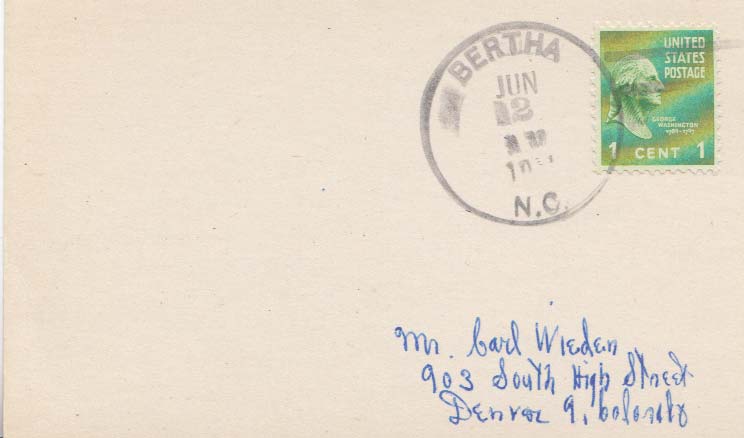 BERTHA
JUN
2
N.C.
UNITED
STATES
POSTAGE
GEORGE
WASHINGTON
1789-1797
1 CENT 1
Mr. Carl Wieden
903 South High Street
Denver 9, Colorado